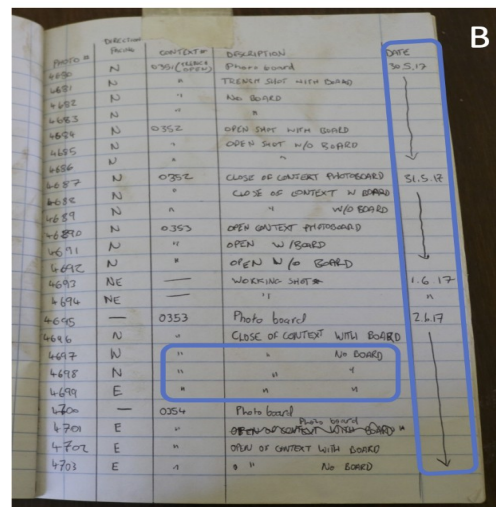 B
PHOTO # DIRECTION FACING CONTEXT # DESCRIPTION DATE
4680 N 0351 (TRENCH OPEN) Photo board 30.5.17
4681 N " TRENCH SHOT WITH BOARD
4682 N " NO BOARD
4683 N "
4684 N 0352 OPEN SHOT WITH BOARD
4685 N " OPEN SHOT W/O BOARD
4686 N " "
4687 N 0352 CLOSE OF CONTEXT PHOTOBOARD 31.5.17
4688 N " CLOSE OF CONTEXT W BOARD
4689 N " " W/O BOARD
4690 N 0353 OPEN CONTEXT PHOTOBOARD
4691 N " OPEN W/BOARD
4692 N " OPEN W/O BOARD
4693 NE — WORKING SHOT 1.6.17
4694 NE — " "
4695 — 0353 Photo board 2.6.17
4696 N " CLOSE OF CONTEXT WITH BOARD
4697 N " " NO BOARD
4698 N " " "
4699 E " " "
4700 — 0354 Photo board
4701 E " Photo board OPEN OF CONTEXT WITH BOARD "
4702 E " OPEN OF CONTEXT WITH BOARD
4703 E " " NO BOARD